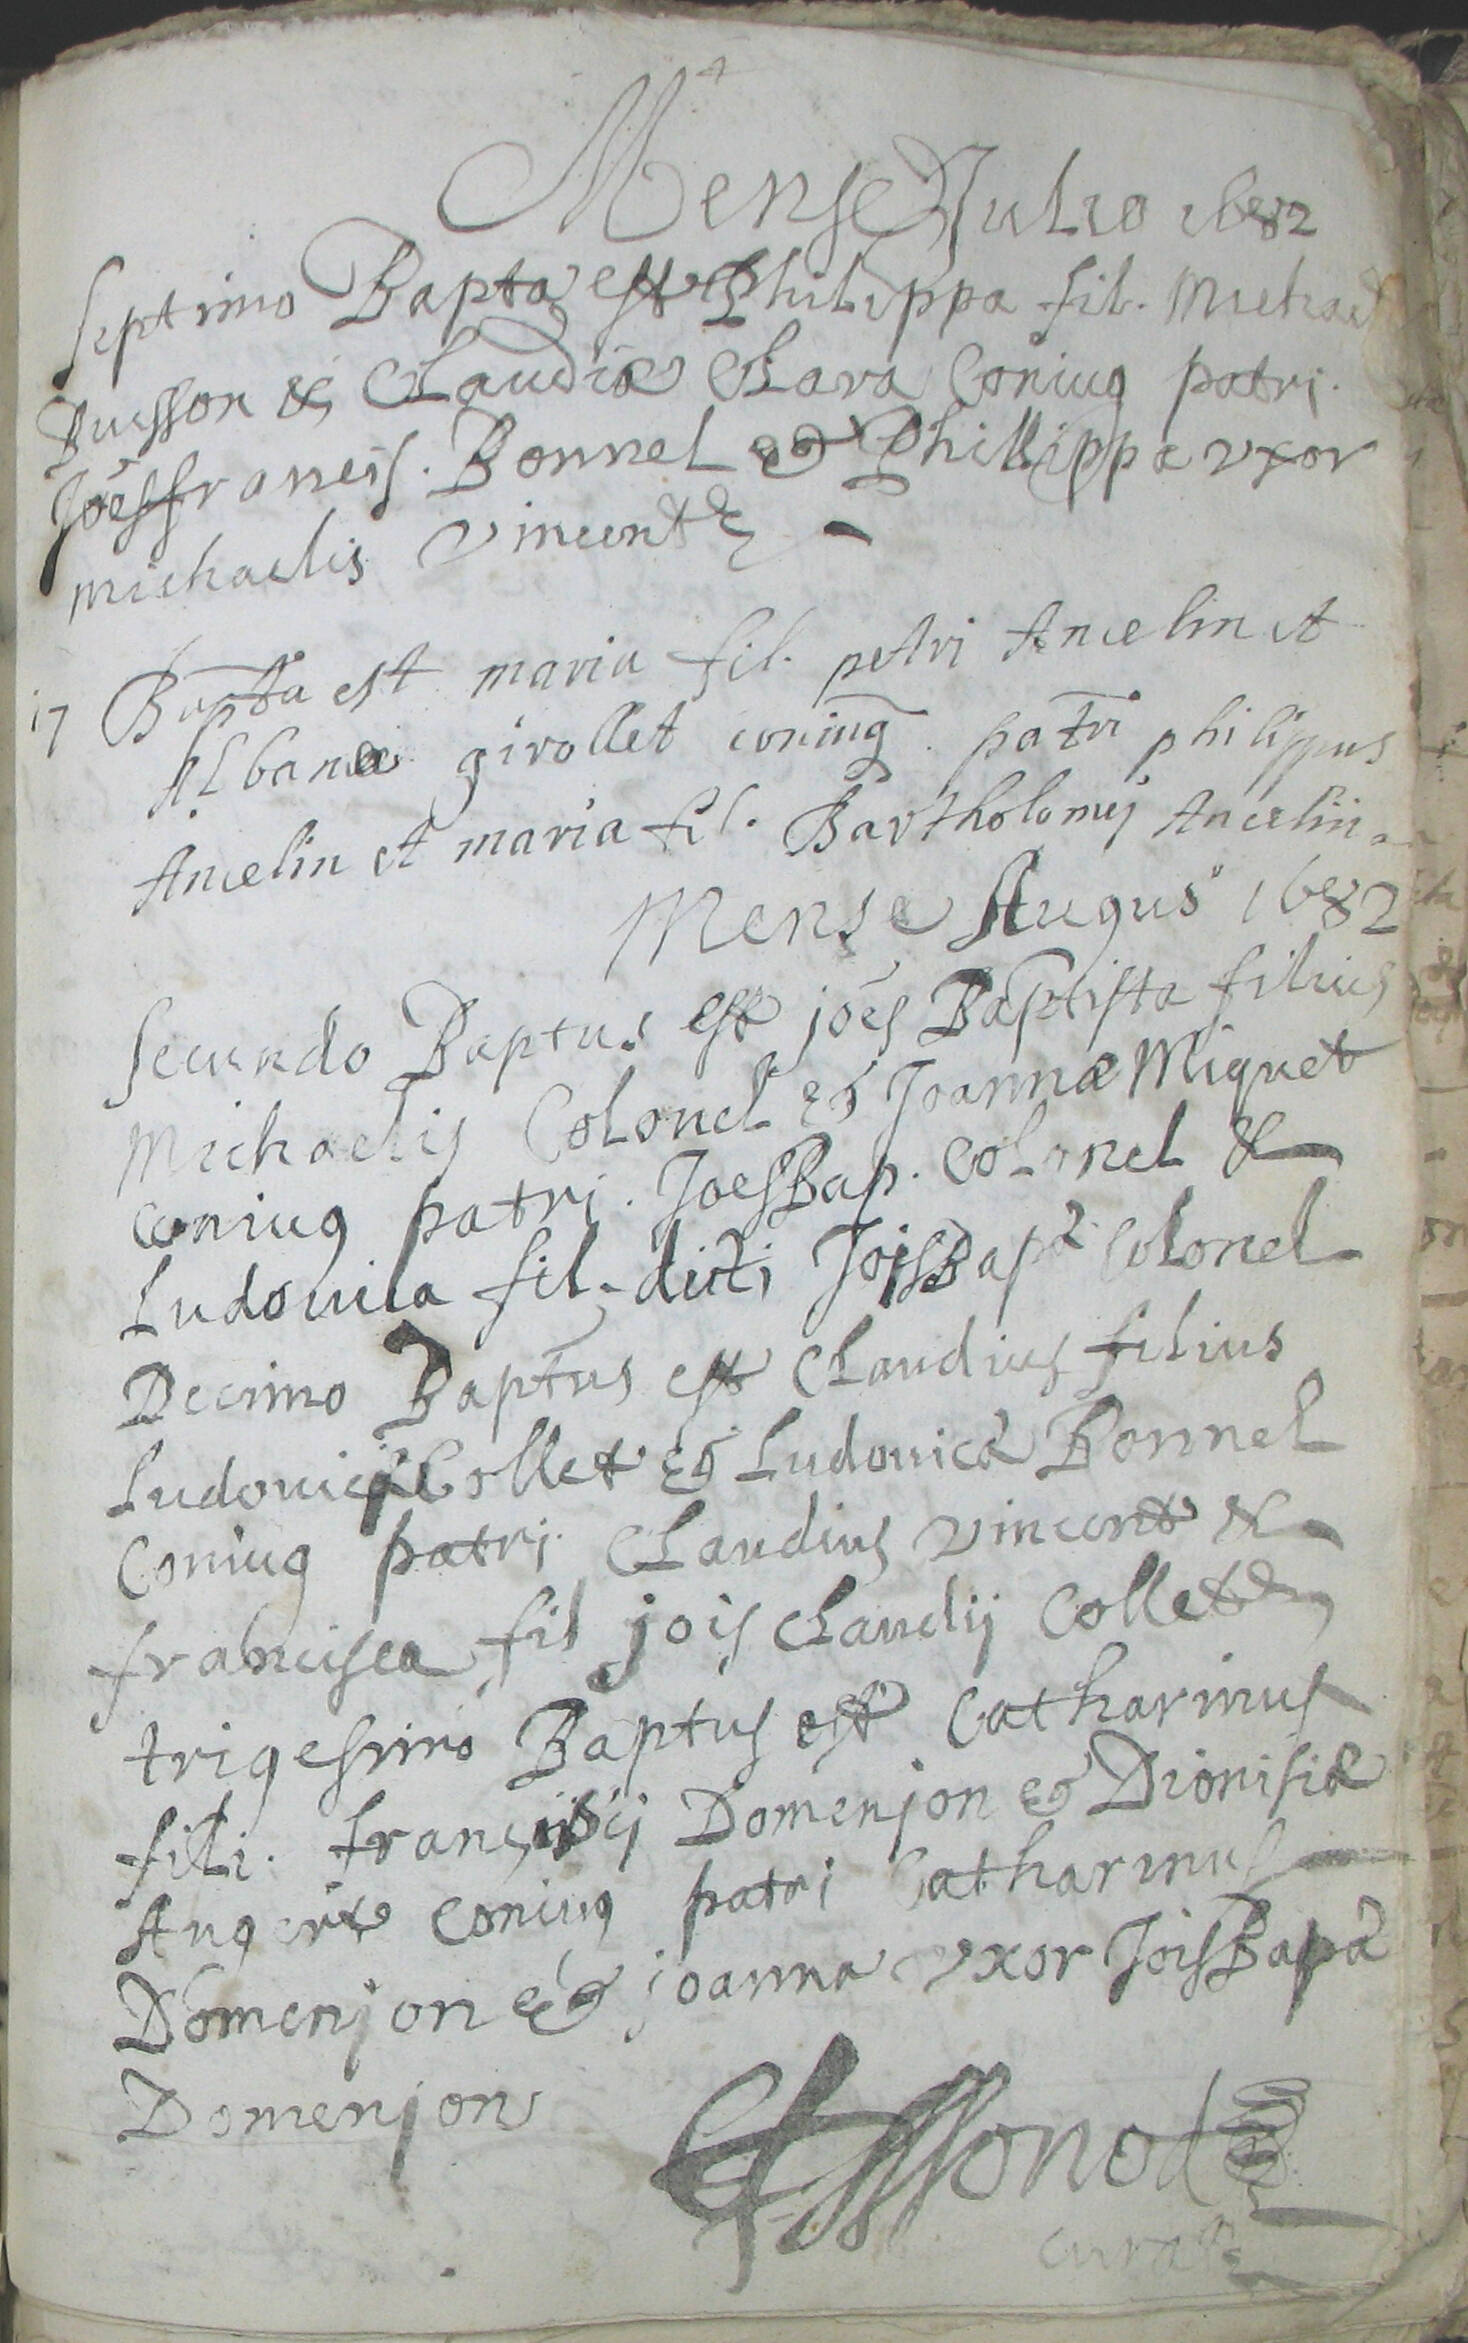 Mense Julio 1682
septimo Bapta est Philippa fil. Michael
Buisson & Claudiæ Clara Coniug patri.
Joes francis. Bonnel et Phillippa vxor
michaelis vincent
17 Bapta est maria fil. petri Ancelin et
Albanæ girollet coniug. patri philippus
Ancelin et maria fil. Bartholomej Ancelin
Mense Augus° 1682
secundo Baptus est joes Baptista filius
Michaelis Colonel et Joannæ Miquet
coniug patri. Joes Bap. Colonel &
Ludovica fil. dicti Jois Bapa Colonel
Decimo Baptus est Claudius filius
Ludovici Collet et Ludovicæ Bonnel
Coniug patri Claudius vincent &
francisca fil jois Claudij Collet
trigesimo Baptus est Catharinus
fili. francisij Domenjon et Dionisiæ
Coniug patri Catharinus
Domenjon et joanna vxor Jois Bapa
Domenjon
curat